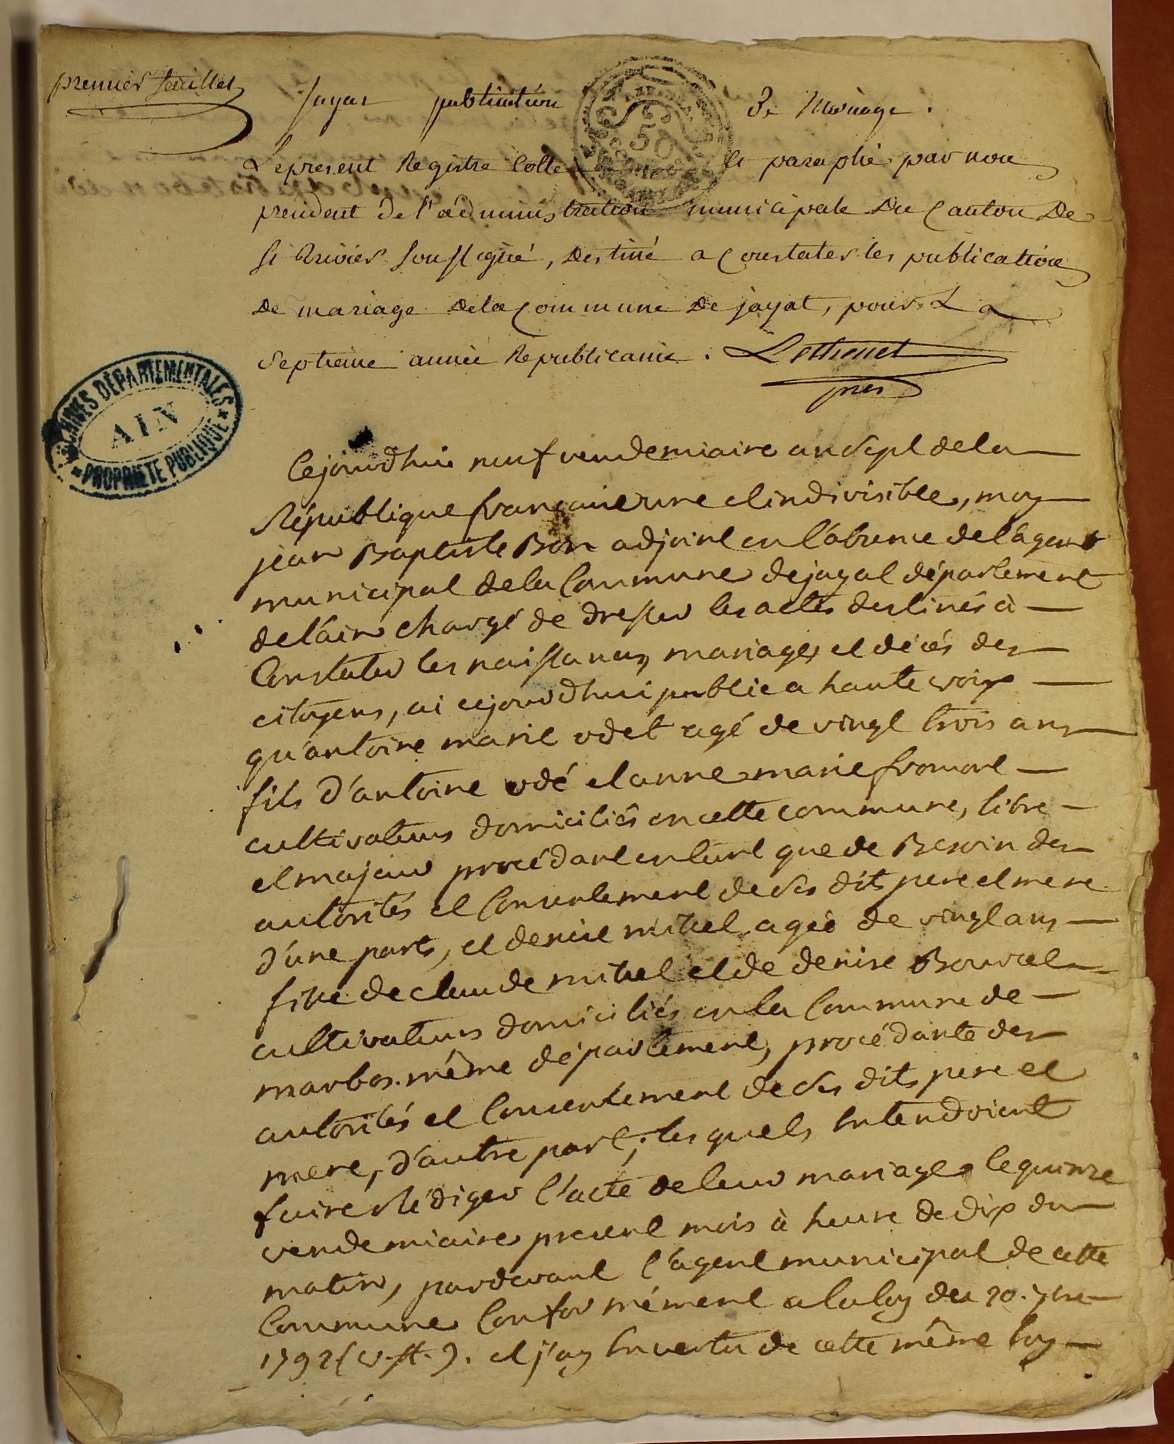 premier feuillet
Jayat publication De Mariage.
Le present Registre Cotté et paraphé par nous
president de l'administration municipale Du Canton De
St Trivier soussigné, destiné a Constater les publications
De mariage de la Commune De jayat, pour La
septieme année Republicaine.
pres
ARCHIVES DÉPARTEMENTALES
AIN
PROPRIÉTÉ PUBLIQUE
50
Cejourdhui neuf vendemiaire an Sept de la
République francaise une et indivisible, moy
jean Baptiste Bon adjoint en l'absence de l'agent
municipal de la Commune de jayat département
de l'ain chargé de dresser les actes destinés à
Constater les naissances, mariages et décés des
citoyens, ai cejourdhui publié a haute voix
qu'antoine marie odet agé de vingt trois ans
fils d'antoine odé et anne marie fromont
cultivateurs domiciliés en cette commune, libre
et majeur procédant en tant que de Besoin des
autorités et Consentement de ses dits pere et mere
d'une part, et denise mitel agée de vingt ans
fille de claude mitel et de denise Bouvet
cultivateurs domiciliés en la Commune de
marbos même département, procédante des
autorités et Consentement de ses dits pere et
mere, d'autre part; les quels Entendoient
faire Rédiger l'acte de leur mariage le quinze
vendemiaire present mois à heure de dix du
matin, pardevant l'agent municipal de cette
Commune Conformément a la loy du 20. 7bre
1792 (v. st.). et j'ay En vertu de cette même loy